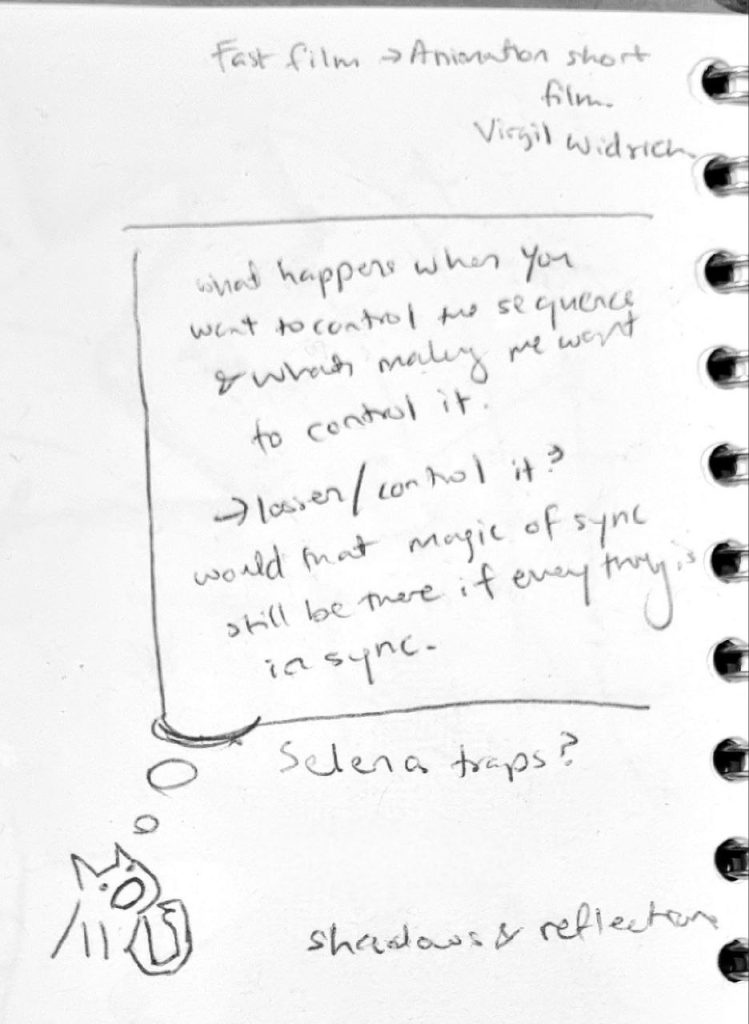 Fast film → Animation short
film.
Virgil Widrich
what happens when you
want to control the sequence
& whats making me want
to control it.
→ loosen/control it?
would that magic of sync
still be there if everything is
in sync.
Selena traps?
shadows & reflections